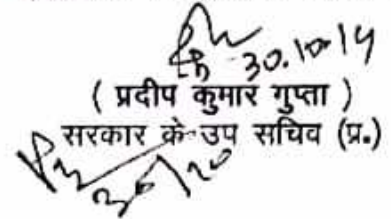 30.10.14
( प्रदीप कुमार गुप्ता )
सरकार के उप सचिव (प्र.)
30/10